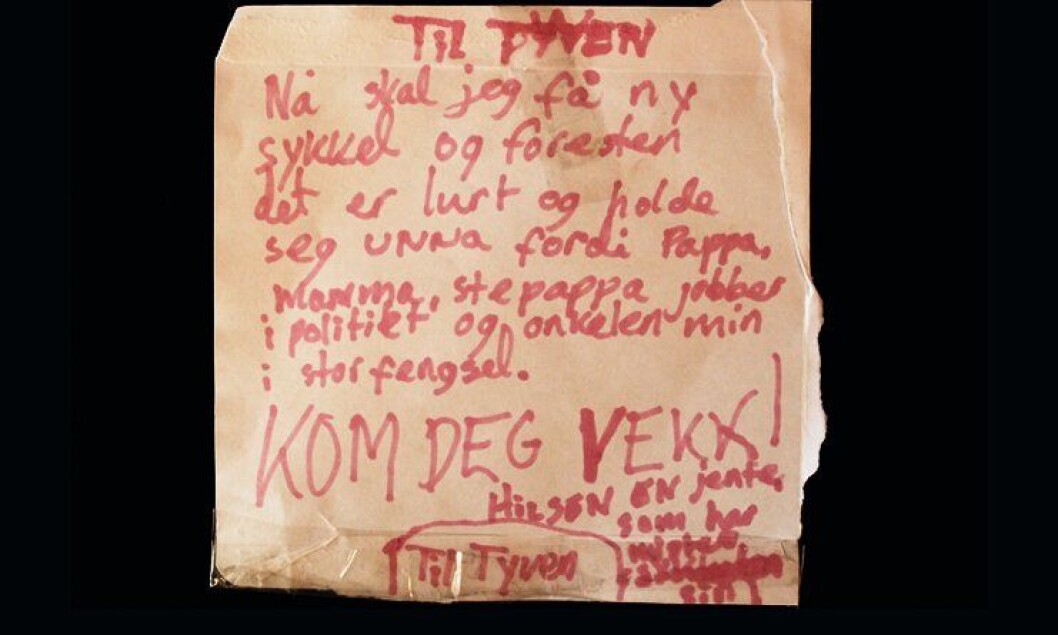 Til TYVEN
Nå skal jeg få ny
sykkel og foresten
det er lurt og holde
seg unna fordi Pappa,
mamma, stepappa jobber
i politiet og onkelen min
i stor fengsel.
KOM DEG VEKK!
HilsEN EN jente,
som har
mistet
sin
Til Tyven